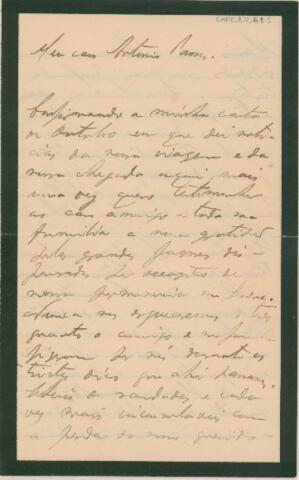 CMPC.2.2.64-1
Meu caro Antonio Passos.
Confirmando a minha carta
de Outubro em que dei noti-
cias da nossa viagem e da
nossa chegada aqui, mais
uma vez quero testemunhar
ao caro amigo e toda sua
familia a nossa gratidão
pelos grandes favores dis-
pensados por occasião de
nossa permanencia em
Nunca nos esqueceremos
quanto o amigo e sua
fizeram por nós durante os
tristes dias que ahi
de saudades e cada
vez mais inconsolaveis com
a perda do nosso querido